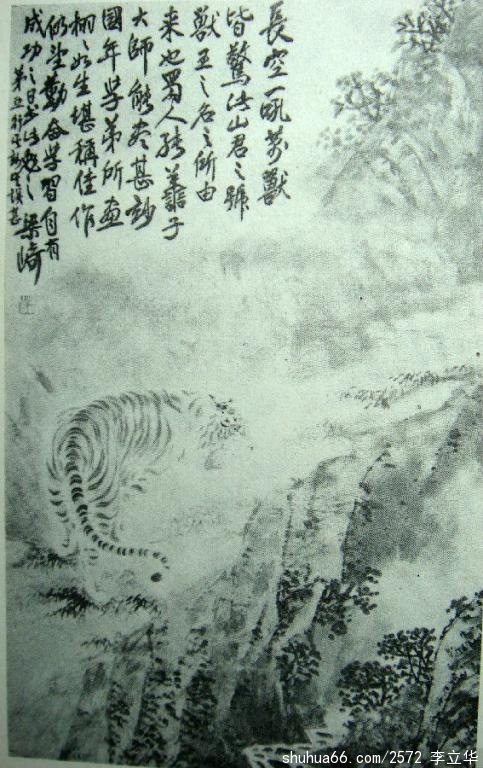 長空一吼万獸
皆驚此山君之號
獸王之名之所由
来也蜀人張善子
大師能虎甚妙
國年学弟所画
栩〻如生堪称佳作
仍望勤奋学習自有
成功之日書此勉之
梁崎
shuhua66.com/2572 李立华